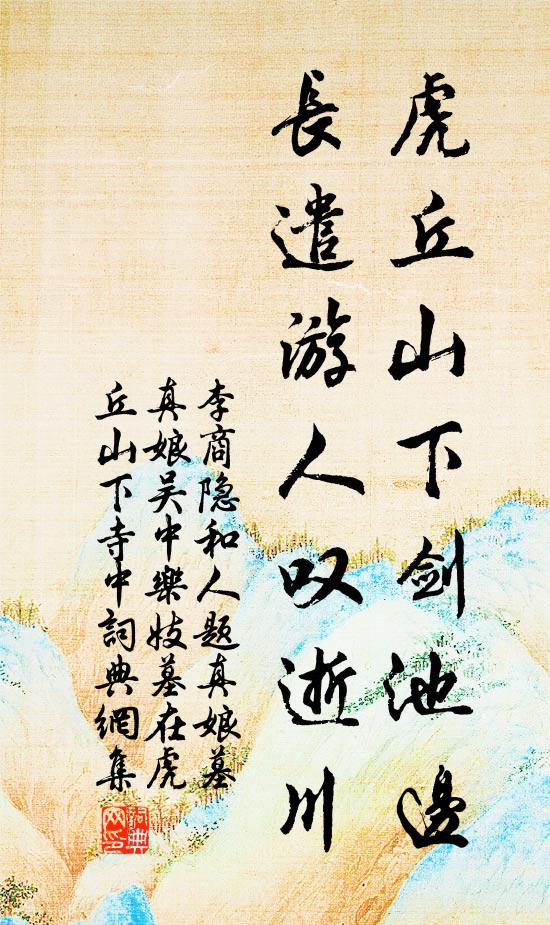 虎丘山下剑池邊
長遣游人叹逝川
李商隐和人题真娘墓
真娘吴中樂妓墓在虎
丘山下寺中詞典網集
詞典
网印